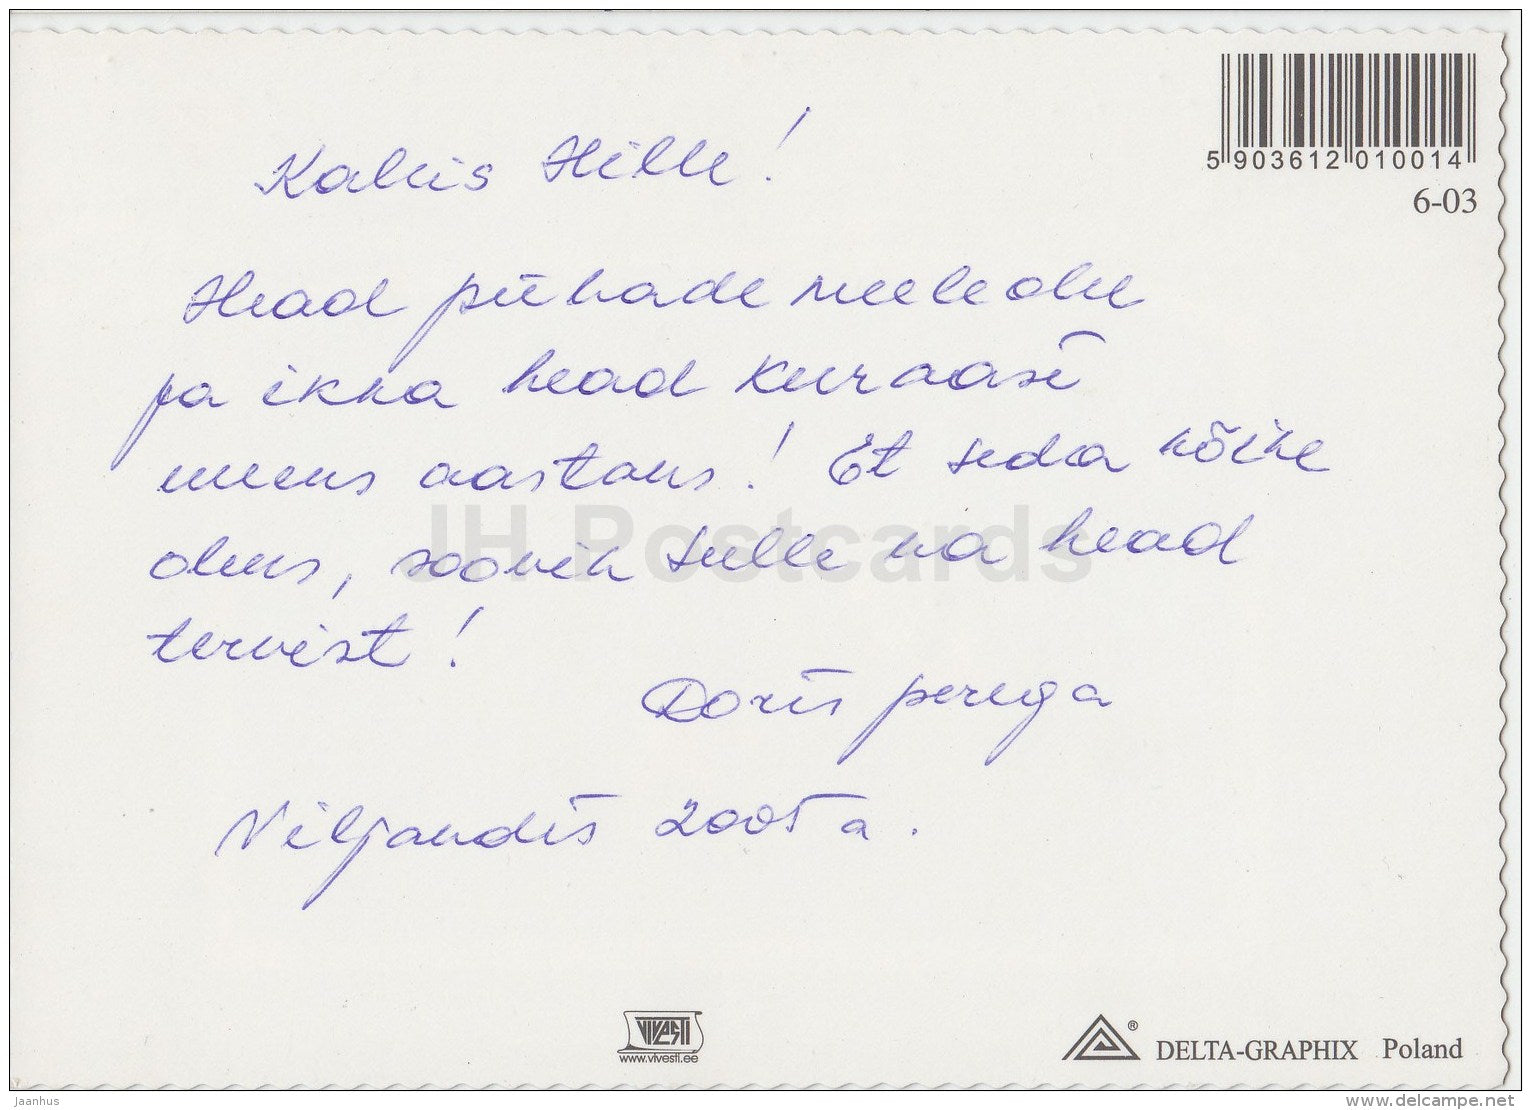 Kallis Hille!
Head pühademeeleolu
ja ikka head kuraasi
uueks aastaks! Et seda kõike
oleks, soovin sulle ka head
tervist!
Doris perega
Viljandis 2005 a.
5 903612 010014
6-03
JH Postcards
VIVESTI
www.vivesti.ee
® DELTA-GRAPHIX Poland
Jaanhus
delcampe.net